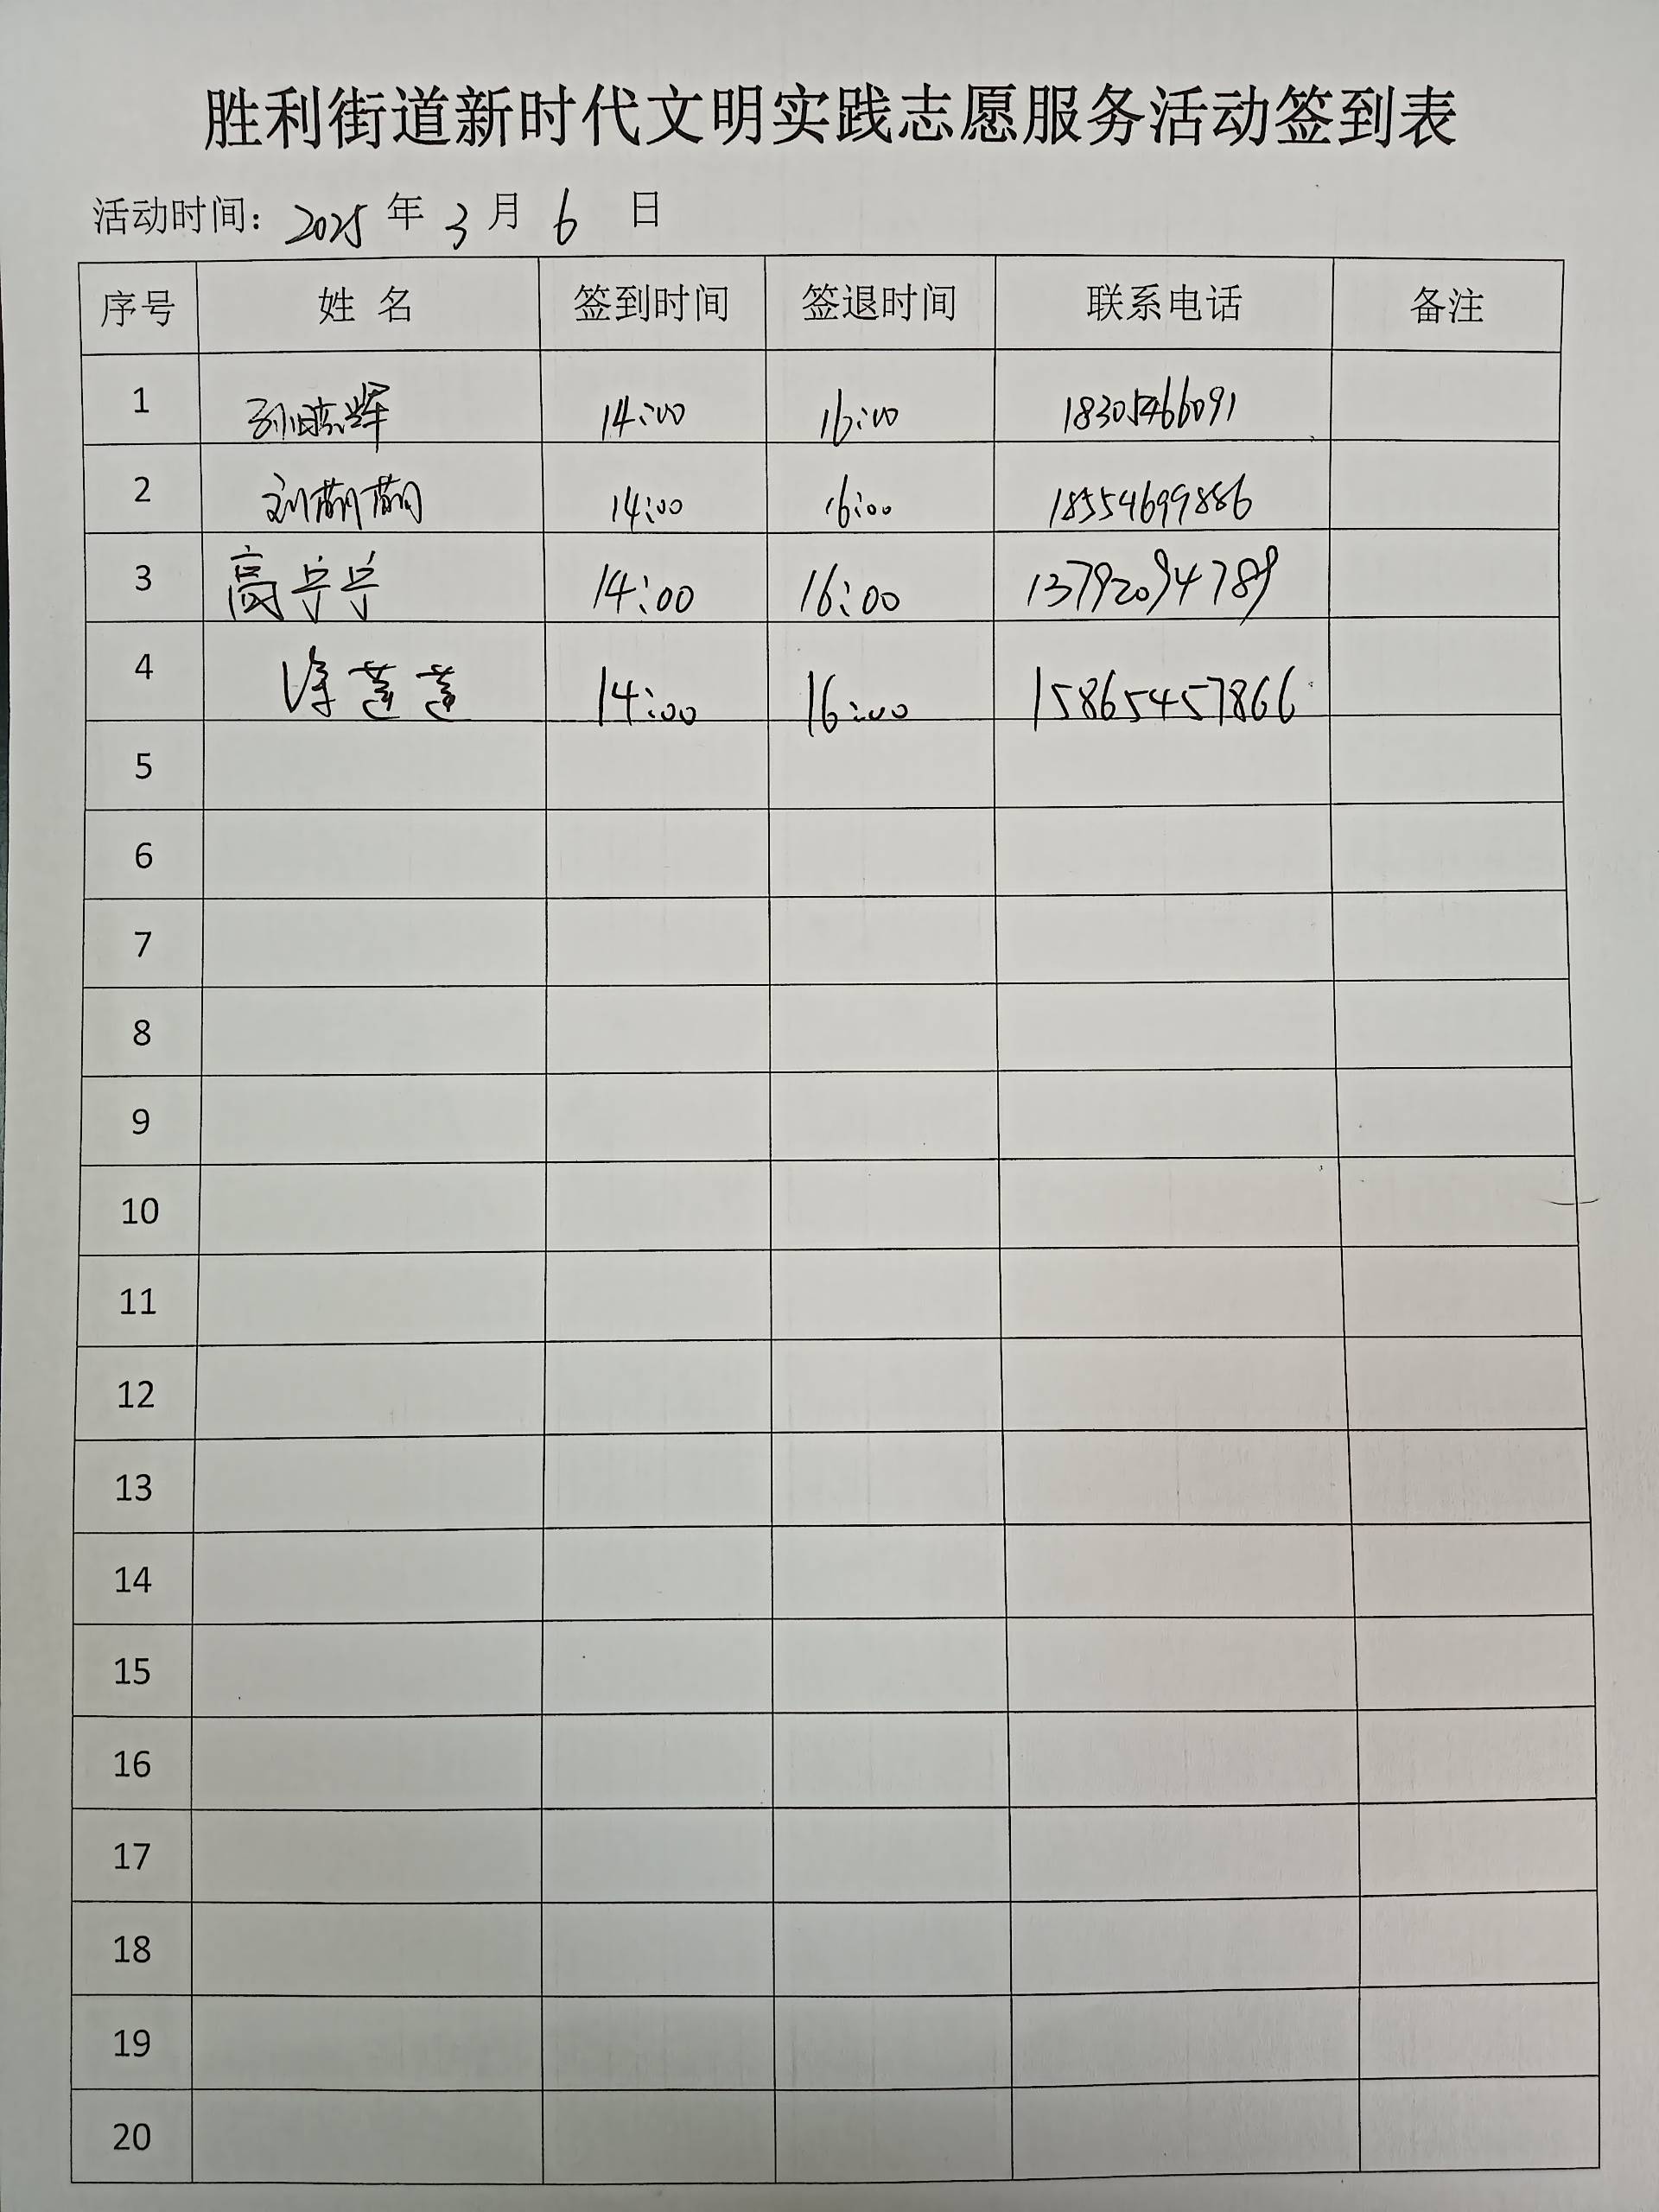 胜利街道新时代文明实践志愿服务活动签到表
活动时间: 2025 年 3 月 6 日
序号 姓 名 签到时间 签退时间 联系电话 备注
1 孙晓辉 14:00 16:00 18305466091
2 刘 14:00 16:00 18554699886
3 高宁宁 14:00 16:00 13792094789
4 徐莲莲 14:00 16:00 15865457866
5
6
7
8
9
10
11
12
13
14
15
16
17
18
19
20